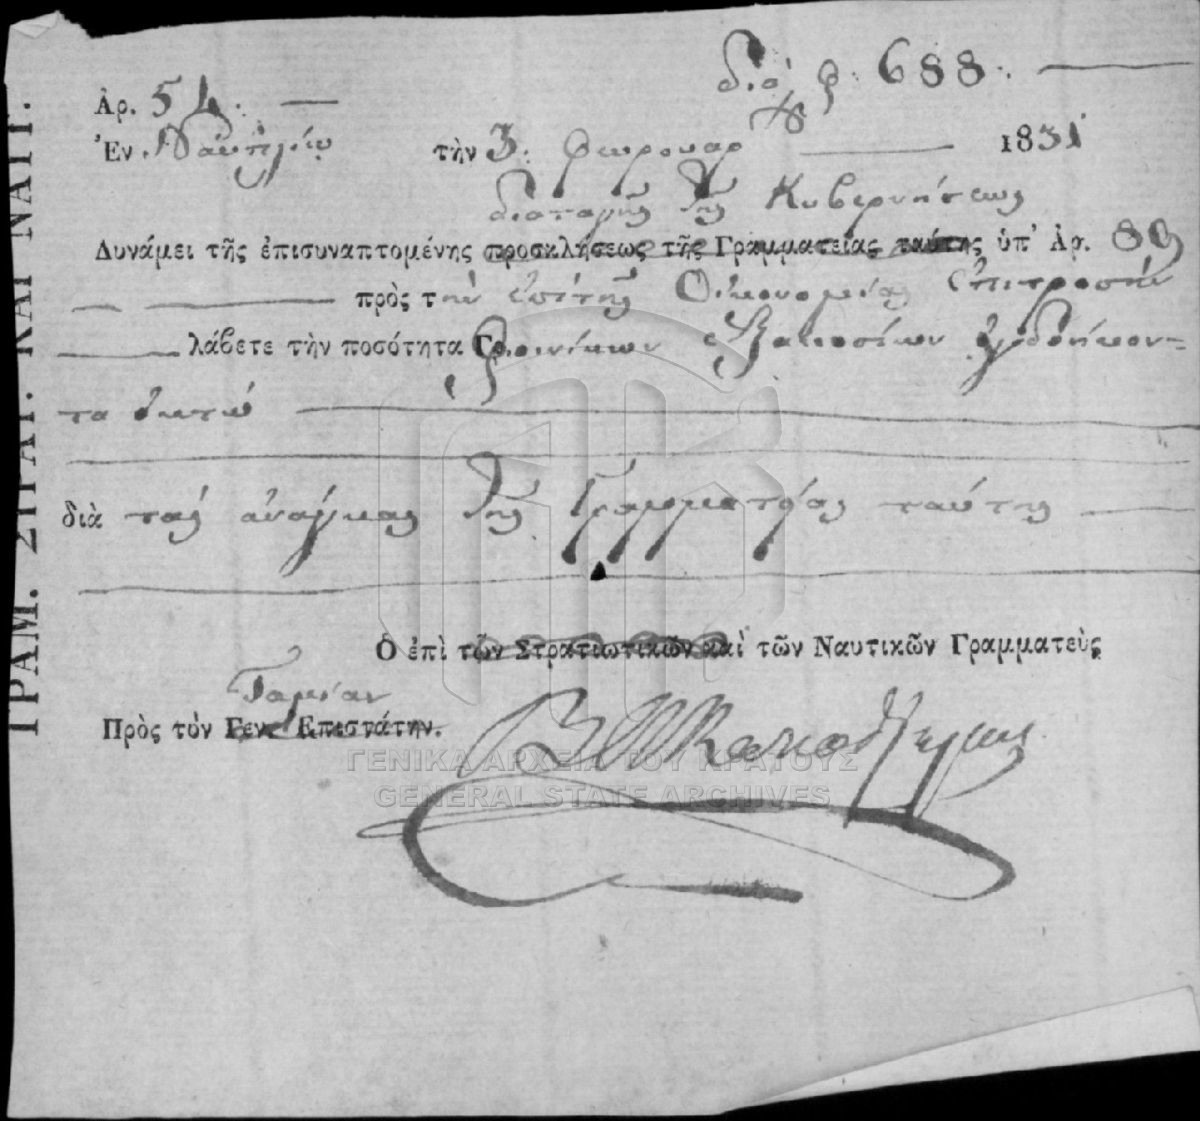 διὰ φ: 688:.
Ἀρ. 54:
Ἐν Ναυπλίῳ τὴν 3: Φευρουαρ 1831
διαταγῆς τῆς Κυβερνήσεως
Δυνάμει τῆς ἐπισυναπτομένης προσκλήσεως τῆς Γραμματείας ταύτης ὑπ' Ἀρ. 89
πρὸς τὴν ἐπὶ τῆς Οἰκονομίας ἐπιτροπὴν
λάβετε τὴν ποσότητα Γρ. φοινίκων ἑξακοσίων ὀγδοήκον-
τα ὀκτώ
διὰ τὰς ἀνάγκας τῆς Γραμματείας ταύτης
Ὁ ἐπὶ τῶν Στρατιωτικῶν καὶ τῶν Ναυτικῶν Γραμματεὺς
Ταμίαν
Πρὸς τὸν Γεν. Ἐπιστάτην.
ΓΡΑΜ. ΣΤΡΑΤ. ΚΑΙ ΝΑΥΤ.
ΓΕΝΙΚΑ ΑΡΧΕΙΑ ΤΟΥ ΚΡΑΤΟΥΣ
GENERAL STATE ARCHIVES